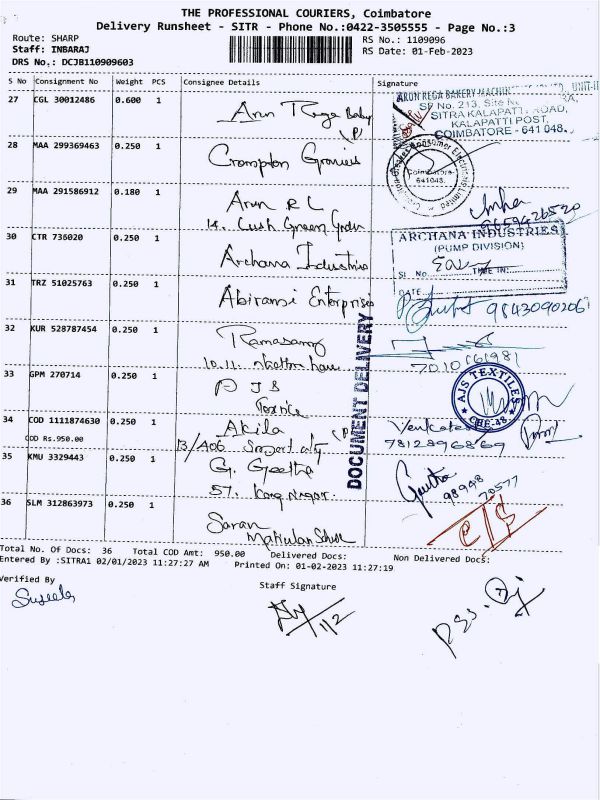 THE PROFESSIONAL COURIERS, Coimbatore
Delivery Runsheet - SITR - Phone No.:0422-3505555 - Page No.:3
Route: SHARP
Staff: INBARAJ
DRS No.: DCJB110909603
RS No.: 1109096
RS Date: 01-Feb-2023
S No Consignment No Weight PCS Consignee Details Signature
27 CGL 30012486 0.600 1 Arun Rega Bakey
ARUN REGA BAKERY MACHIN UNIT-II
SF No. 213, Site
SITRA KALAPATTI ROAD,
KALAPATTI POST,
COIMBATORE - 641 048.
28 MAA 299369463 0.250 1 Crompton Greaves
Consumer Electricals Limited
Coimbatore
641048.
29 MAA 291586912 0.180 1 Arun R L
14. Cush Green Gdn
9659426520
30 CTR 736020 0.250 1 Archana Industries
ARCHANA INDUSTRIES
(PUMP DIVISION)
Sl. No. TIME IN:
DATE
31 TRZ 51025763 0.250 1 Abirami Enterprises
9843090206
32 KUR 528787454 0.250 1 Ramasamy
10.11.
7010161981
DOCUMENT DELIVERY
33 GPM 270714 0.250 1 A J S
AJS TEXTILES
CBE-48
34 COD 1111874630 0.250 1 Akila
COD Rs.950.00 B/A06 Smart city
Venkatesh
7812896869
35 KMU 3329443 0.250 1 G. Geetha
57. Nagar
Geetha
98948
70577
36 SLM 312863973 0.250 1 Saran
C/S
Total No. Of Docs: 36 Total COD Amt: 950.00 Delivered Docs: Non Delivered Docs:
Entered By :SITRA1 02/01/2023 11:27:27 AM Printed On: 01-02-2023 11:27:19
Verified By
Staff Signature
Suseela
1/2